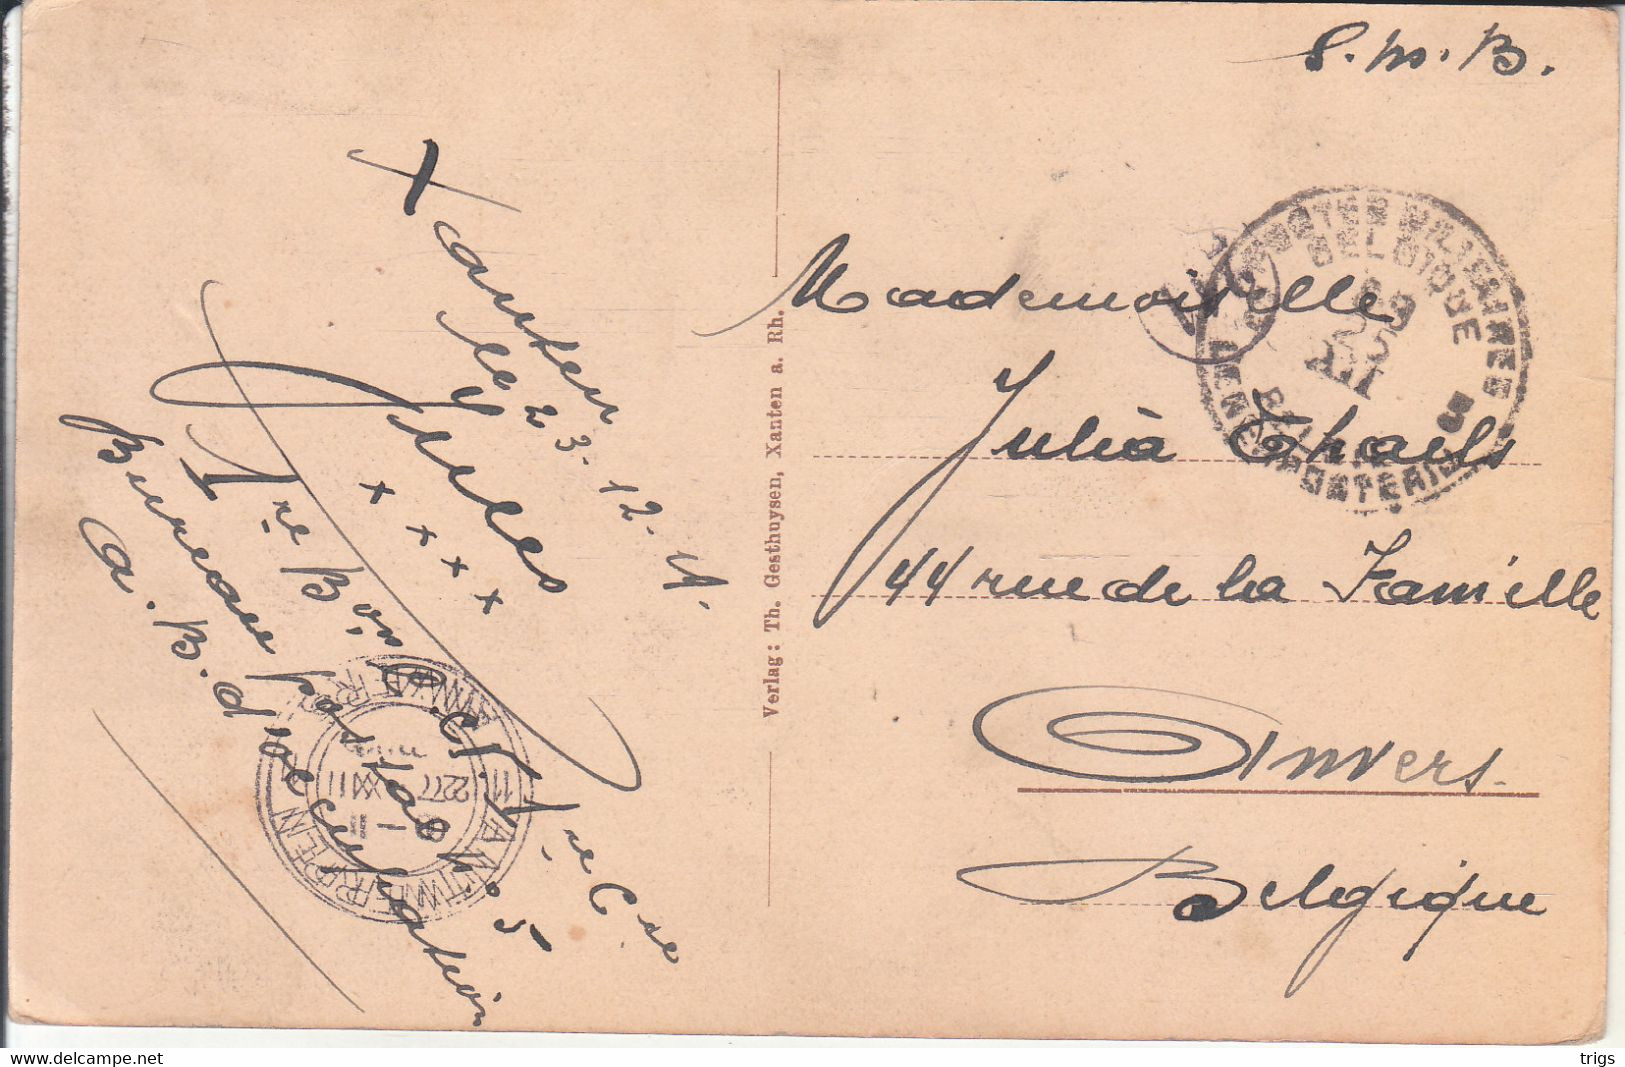 S.M.B.
Xanten
le 23.12.21.
Jules
x x x x
1re Bon. Cy. 1re Cie
Bureau postal N° 5
A.B. d'occupation
Verlag: Th. Gesthuysen, Xanten a. Rh.
Mademoiselle
Julia
44 rue de la Famille
Anvers.
Belgique
POSTES MILITAIRES
BELGIQUE
BELGIE
LEGERPOSTERIJ
5
ANTWERPEN
ANVERS
trigs